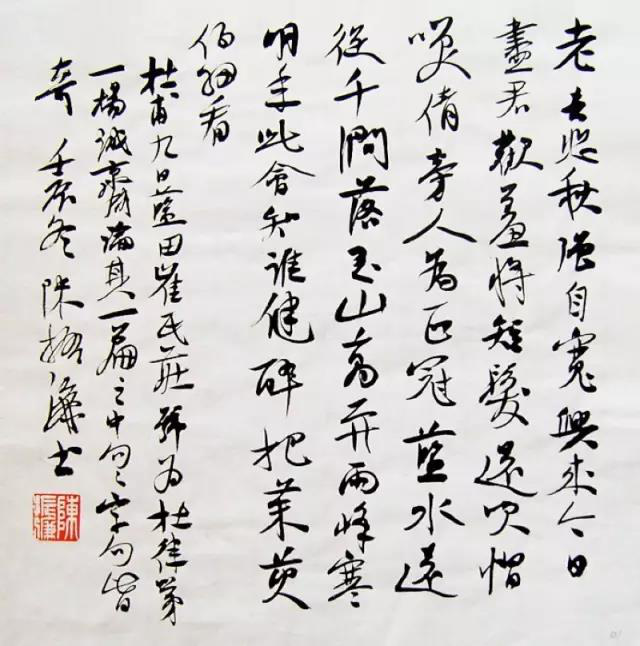 老去悲秋强自寬興来今日
盡君歡羞將短髮還吹帽
咲倩旁人為正冠藍水遠
從千澗落玉山高并兩峰寒
明年此會知誰健醉把茱萸
仔細看
杜甫九日藍田崔氏莊號為杜律第
一楊誠齋謂其一篇之中句々字句皆
奇壬辰冬陳振濂書
陳振濂